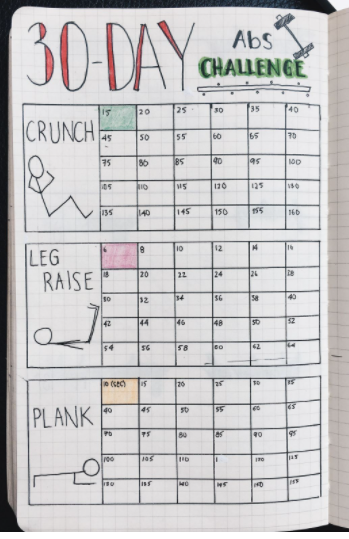 30-DAY
Abs
CHALLENGE
CRUNCH
15 20 25 30 35 40
45 50 55 60 65 70
75 80 85 90 95 100
105 110 115 120 125 130
135 140 145 150 155 160
LEG
RAISE
6 8 10 12 14 16
18 20 22 24 26 28
30 32 34 36 38 40
42 44 46 48 50 52
54 56 58 60 62 64
PLANK
10 (SEC) 15 20 25 30 35
40 45 50 55 60 65
70 75 80 85 90 95
100 105 110 120 125
130 135 140 145 150 155